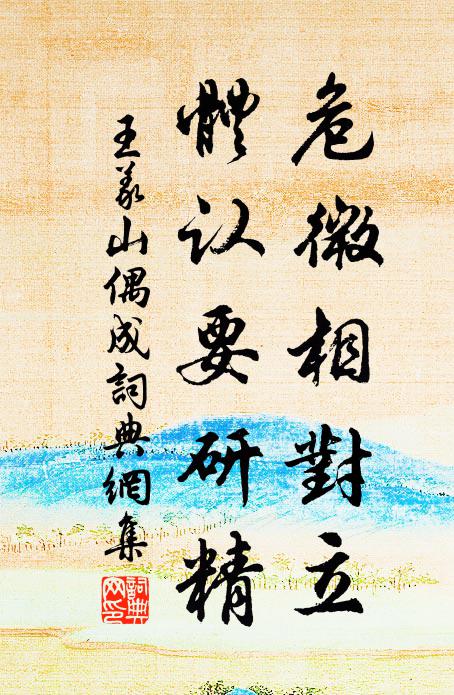 危微相對立
體认要研精
王义山偶成詞典網集
詞典
网印